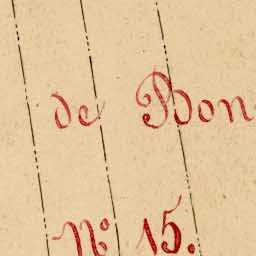 de Bon
N° 15.